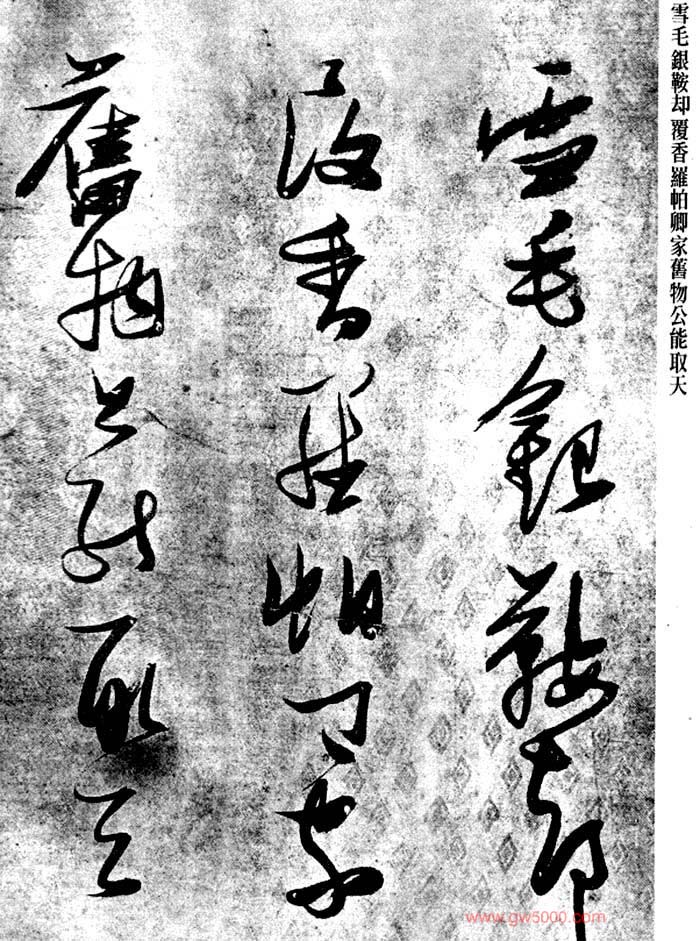 雪毛銀鞍却覆香羅帕卿家舊物公能取天
雪毛銀鞍却
覆香羅帕卿家
舊物公能取天
www.gw5000.com